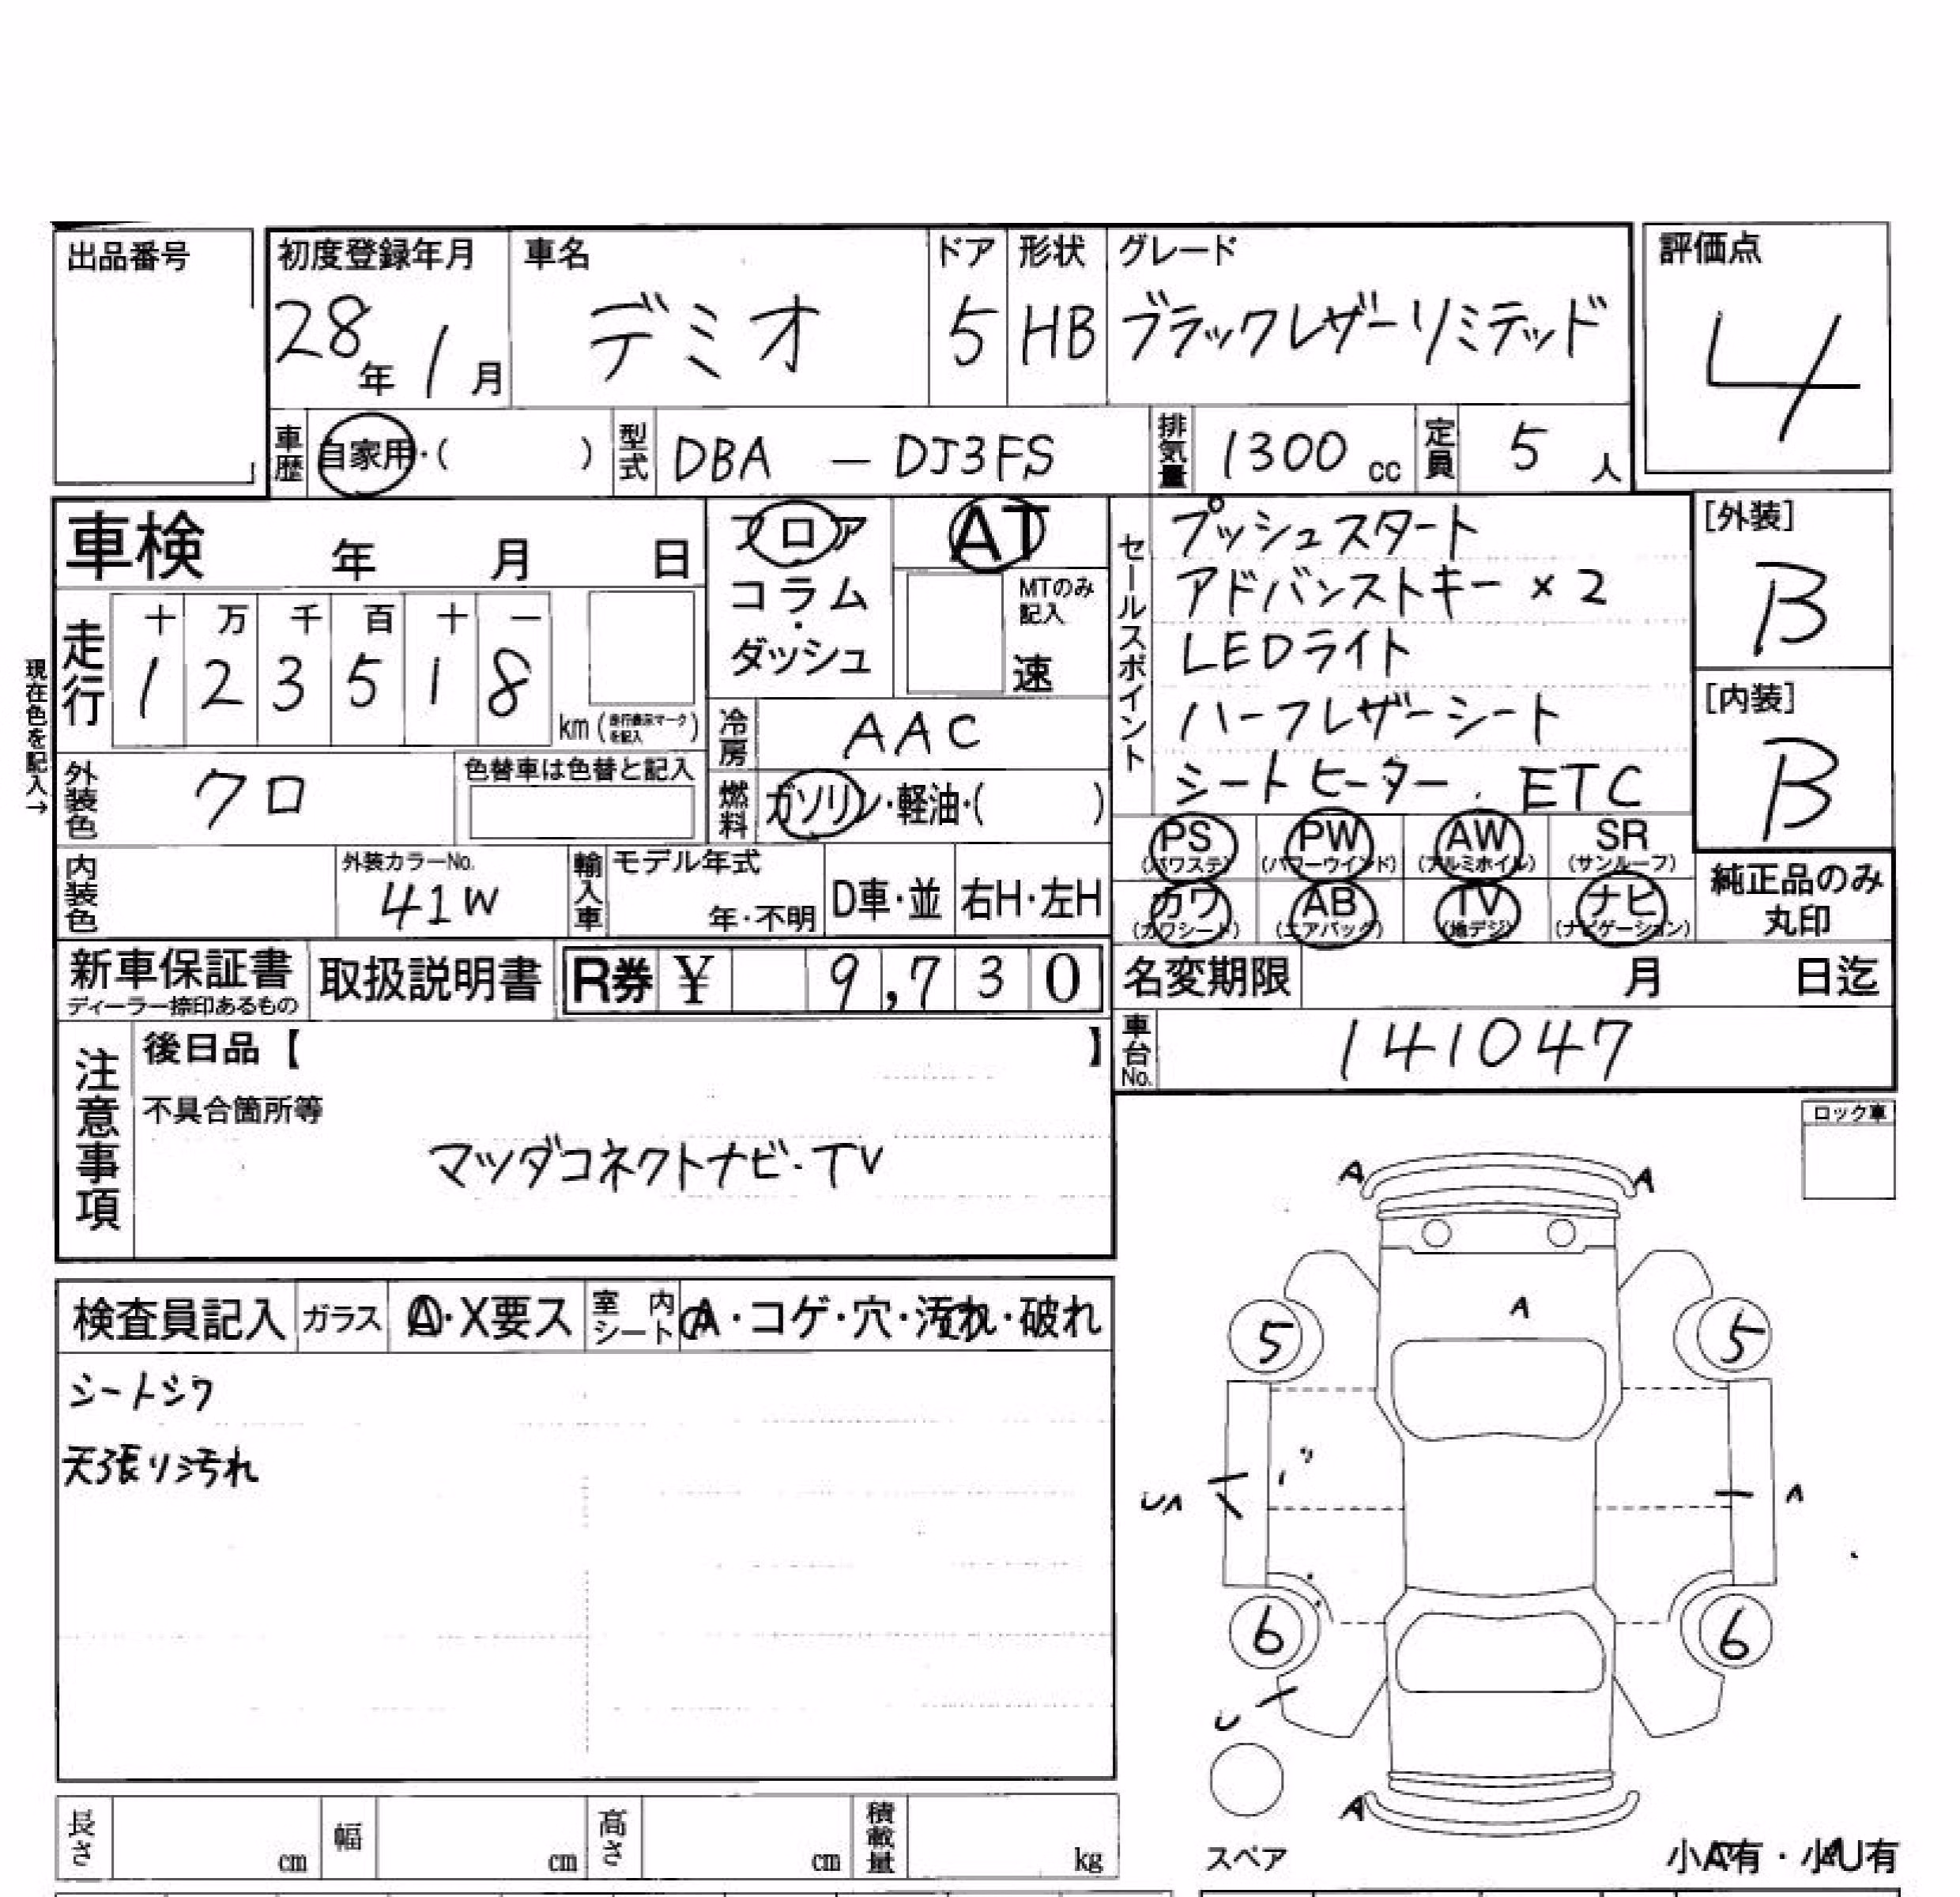 出品番号
初度登録年月 車名 ドア 形状 グレード 評価点
28年 1月 デミオ 5 HB ブラックレザーリミテッド 4
車歴 自家用・( ) 型式 DBA - DJ3FS 排気量 1300 cc 定員 5 人
車検 年 月 日
フロア コラム・ダッシュ
AT MTのみ記入 速
セールスポイント
プッシュスタート
アドバンストキー ×2
LEDライト
ハーフレザーシート
シートヒーター. ETC
[外装] B
[内装] B
現在色を記入→
走行 十 万 千 百 十 一
1 2 3 5 1 8 km (走行表示マークを記入)
冷房 AAC
外装色 クロ 色替車は色替と記入
燃料 ガソリン・軽油・( )
PS (パワステ) PW (パワーウインド) AW (アルミホイル) SR (サンルーフ)
カワ (カワシート) AB (エアバック) TV (地デジ) ナビ (ナビゲーション)
純正品のみ丸印
内装色 外装カラーNo. 41W 輸入車 モデル年式 年・不明 D車・並 右H・左H
新車保証書 ディーラー捺印あるもの 取扱説明書 R券 ¥ 9,730 名変期限 月 日迄
車台No. 141047
注意事項 後日品【 】
不具合箇所等
マツダコネクトナビ・TV
ロック車
検査員記入 ガラス A・X要ス 室内シート A・コゲ・穴・汚れ・破れ
シートシワ
天張り汚れ
A A
A
5 5
UA A
6 6
U
A
スペア 小A有・小U有
長さ cm 幅 cm 高さ cm 積載量 kg